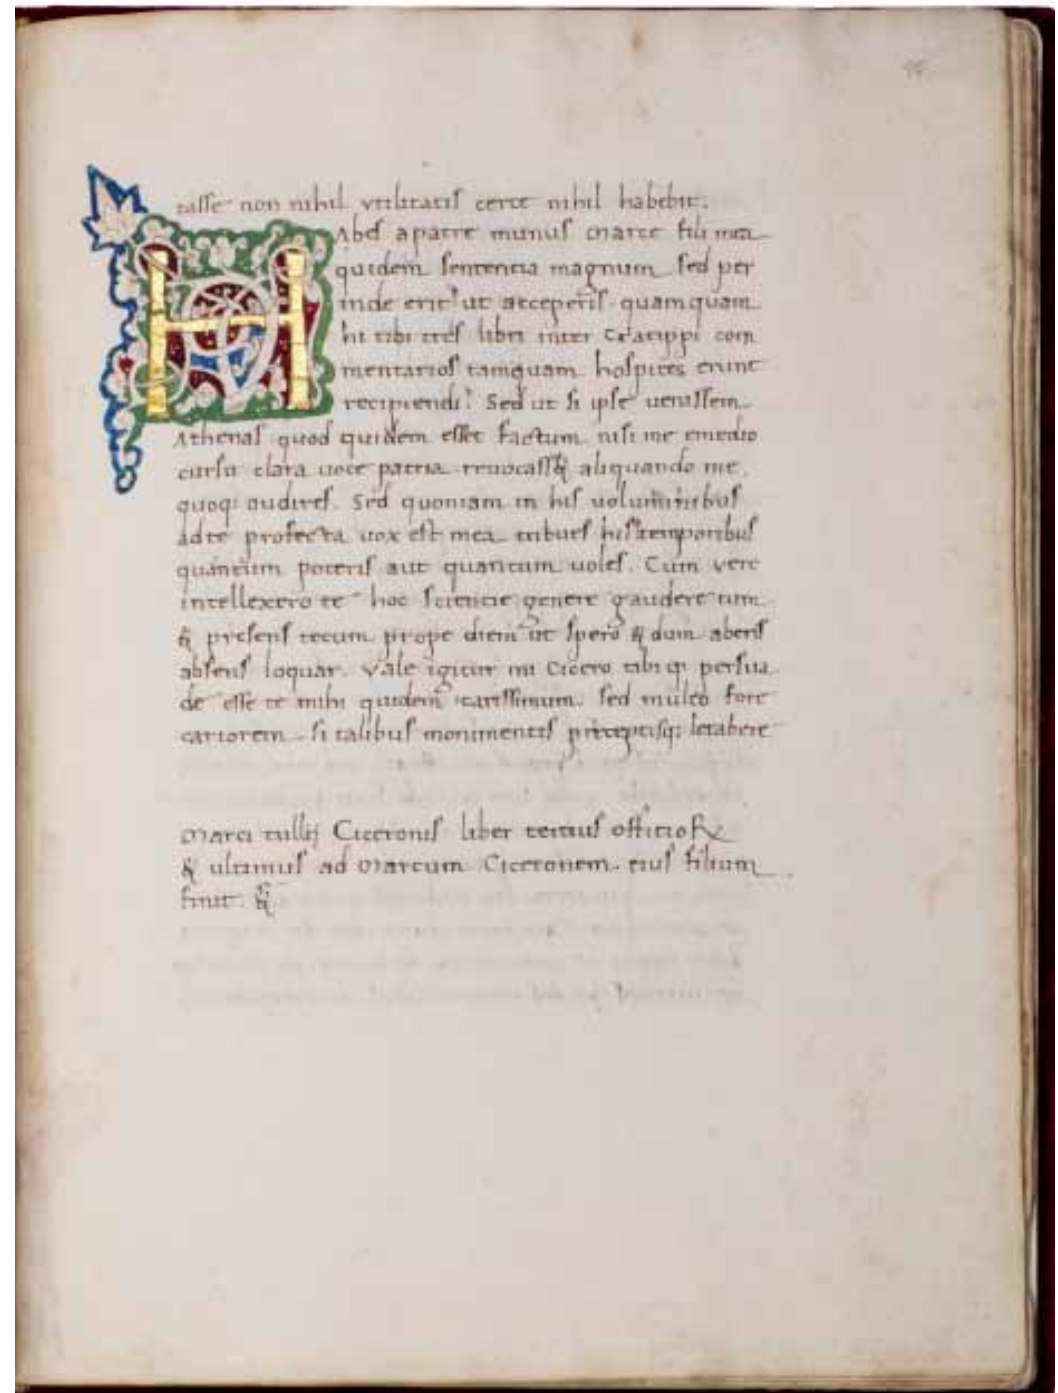 tasse non nihil utilitatis certe nihil habebit.
HAbes a patre munus Marce fili mea
quidem sententia magnum sed per
inde erit ut acceperis quamquam
hi tibi tres libri inter Cratippi com
mentarios tamquam hospites erunt
recipiendi. Sed ut si ipse venissem
Athenas quod quidem esset factum nisi me emedio
cursu clara uoce patria reuocass& aliquando me
quoq; audires. Sed quoniam in his uoluminibus
ad te profecta uox est mea tribues his temporibus
quantum poteris aut quantum uoles. Cum vero
intellexero te hoc scientie genere gaudere tum
& presens tecum prope diem ut spero & dum aberis
absens loquar. Vale igitur mi Cicero tibi q; persua
de esse te mihi quidem carissimum. sed multo fore
cariorem si talibus monimentis preceptisq; letabere
Marci tullij Ciceronis liber tertius offitioꝝ
& ultimus ad Marcum Ciceronem eius filium
finit. &